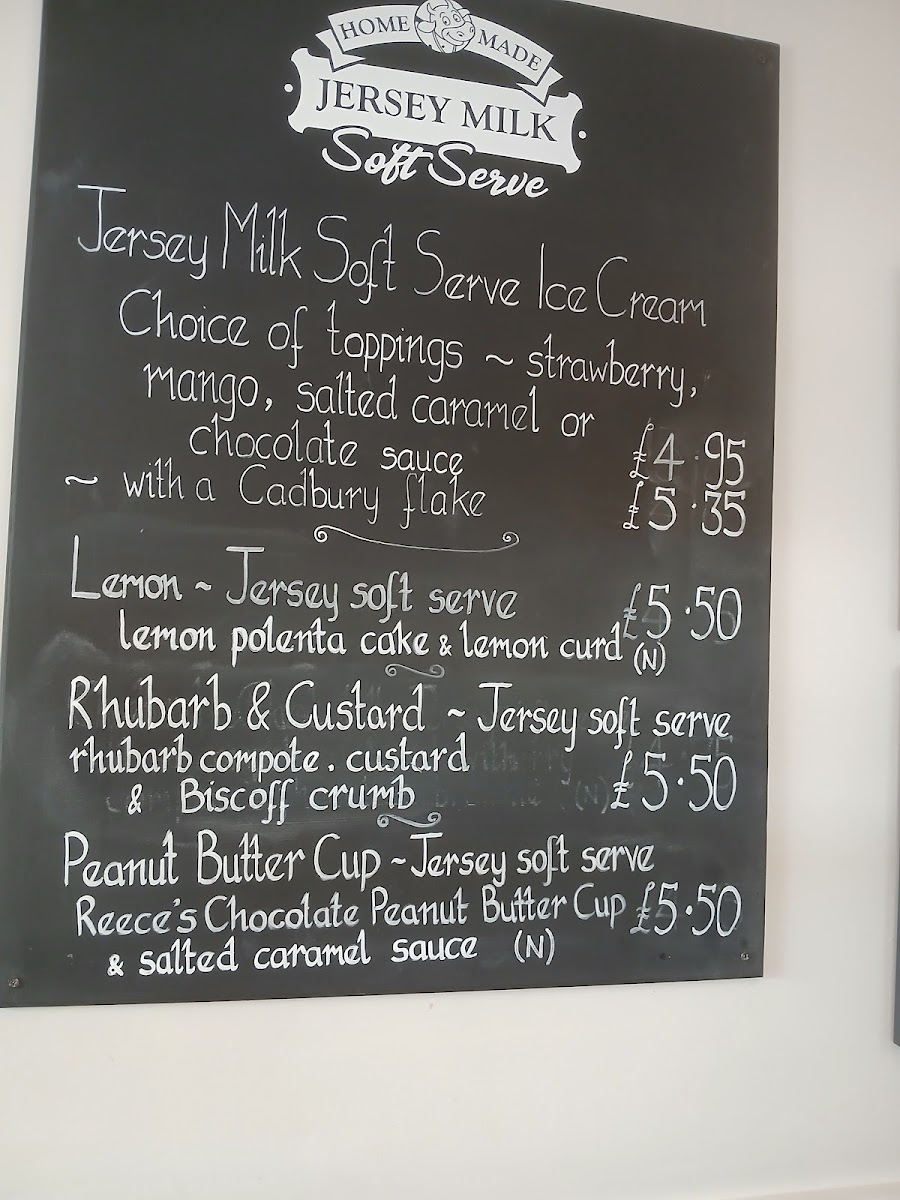 HOME MADE
JERSEY MILK
Soft Serve
Jersey Milk Soft Serve Ice Cream
Choice of toppings ~ strawberry,
mango, salted caramel or
chocolate sauce £4.95
~ with a Cadbury flake £5.35
Lemon ~ Jersey soft serve £5.50
lemon polenta cake & lemon curd (N)
Rhubarb & Custard ~ Jersey soft serve
rhubarb compote. custard
& Biscoff crumb £5.50
Peanut Butter Cup ~ Jersey soft serve
Reece's Chocolate Peanut Butter Cup £5.50
& salted caramel sauce (N)